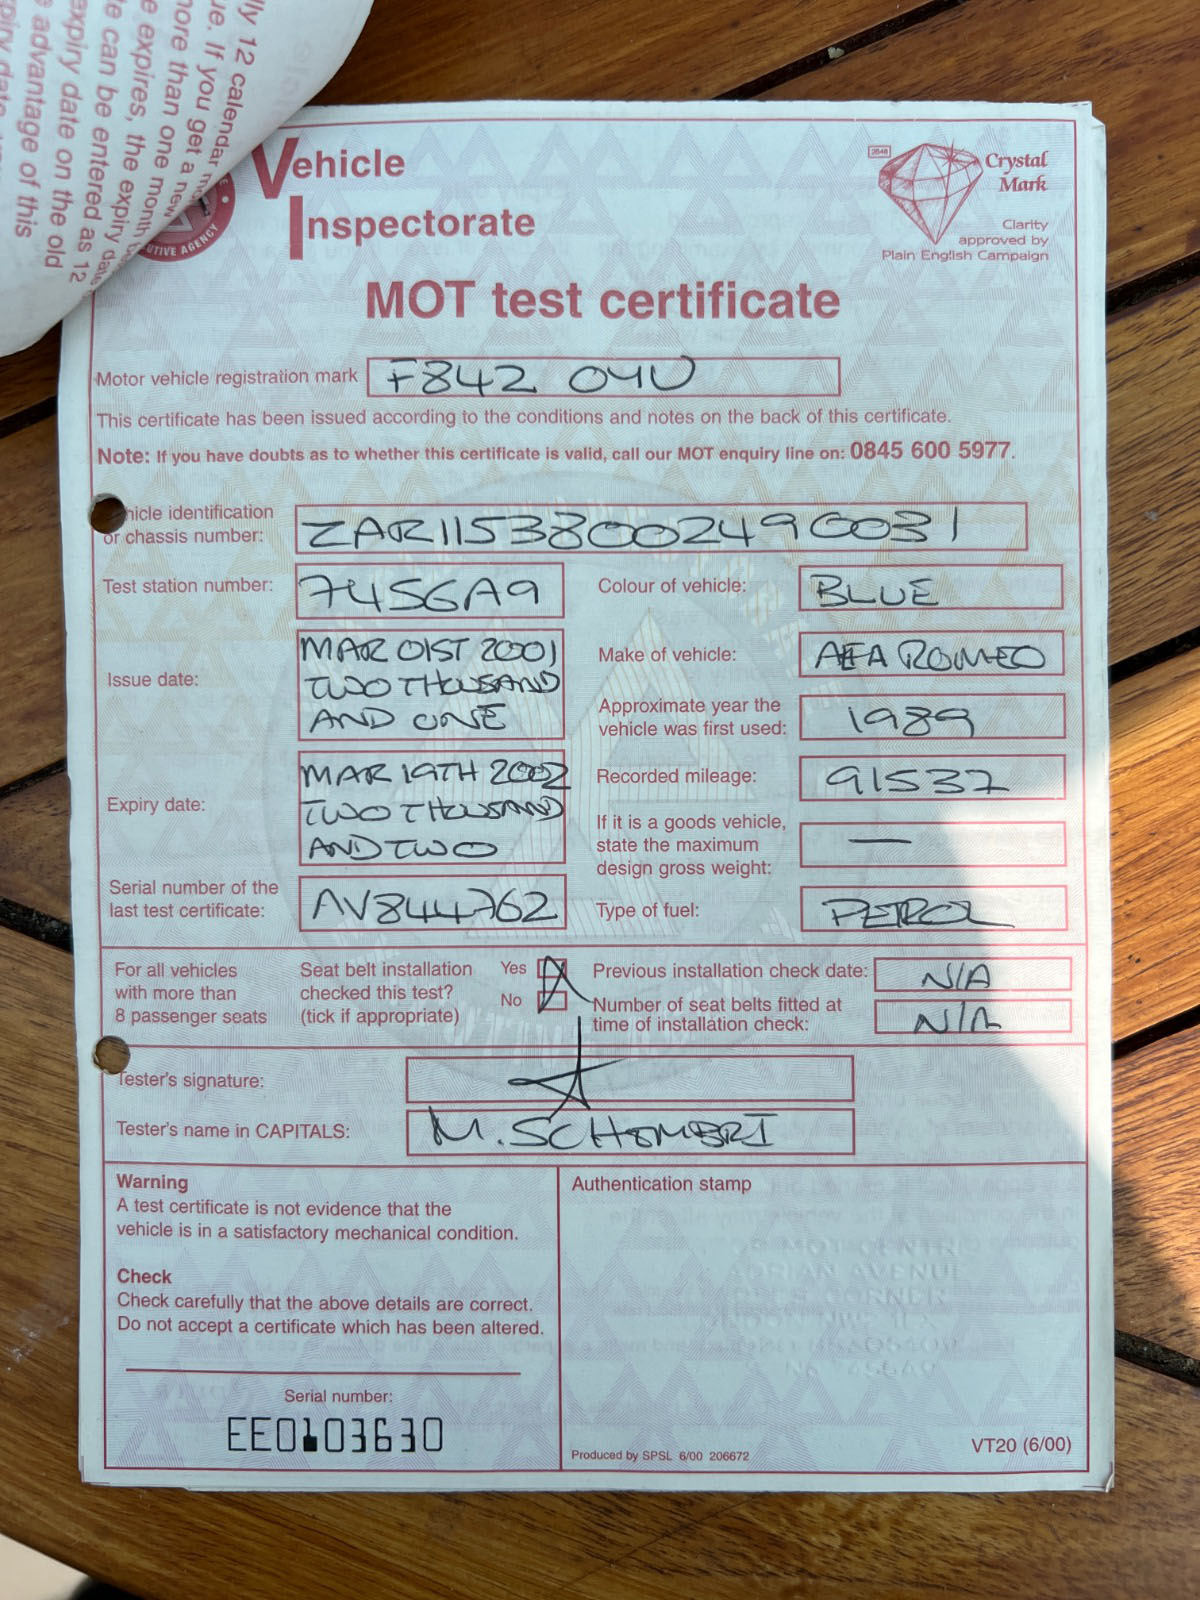 lly 12 calendar
re. If you get a new
more than one month
e expires, the expiry
e can be entered as 12
expiry date on the old
advantage of this
Vehicle
Inspectorate
UTIVE AGENCY
3546
Crystal
Mark
Clarity
approved by
Plain English Campaign
MOT test certificate
Motor vehicle registration mark F842 OYU
This certificate has been issued according to the conditions and notes on the back of this certificate.
Note: If you have doubts as to whether this certificate is valid, call our MOT enquiry line on: 0845 600 5977.
hicle identification
or chassis number: ZAR11538002490031
Test station number: 7456A9
Colour of vehicle: BLUE
Issue date: MAR 01ST 2001
TWO THOUSAND
AND ONE
Make of vehicle: ALFA ROMEO
Approximate year the
vehicle was first used: 1989
Expiry date: MAR 19TH 2002
TWO THOUSAND
AND TWO
Recorded mileage: 91537
If it is a goods vehicle,
state the maximum
design gross weight: —
Serial number of the
last test certificate: AV844762
Type of fuel: PETROL
For all vehicles
with more than
8 passenger seats
Seat belt installation
checked this test?
(tick if appropriate)
Yes
No
Previous installation check date: N/A
Number of seat belts fitted at
time of installation check: N/A
Tester's signature:
Tester's name in CAPITALS: M. SCHEMBRI
Warning
A test certificate is not evidence that the
vehicle is in a satisfactory mechanical condition.
Check
Check carefully that the above details are correct.
Do not accept a certificate which has been altered.
Serial number:
EE0103630
Authentication stamp
MOT CENTRE
AVENUE
CORNER
Produced by SPSL 6/00 206672
VT20 (6/00)